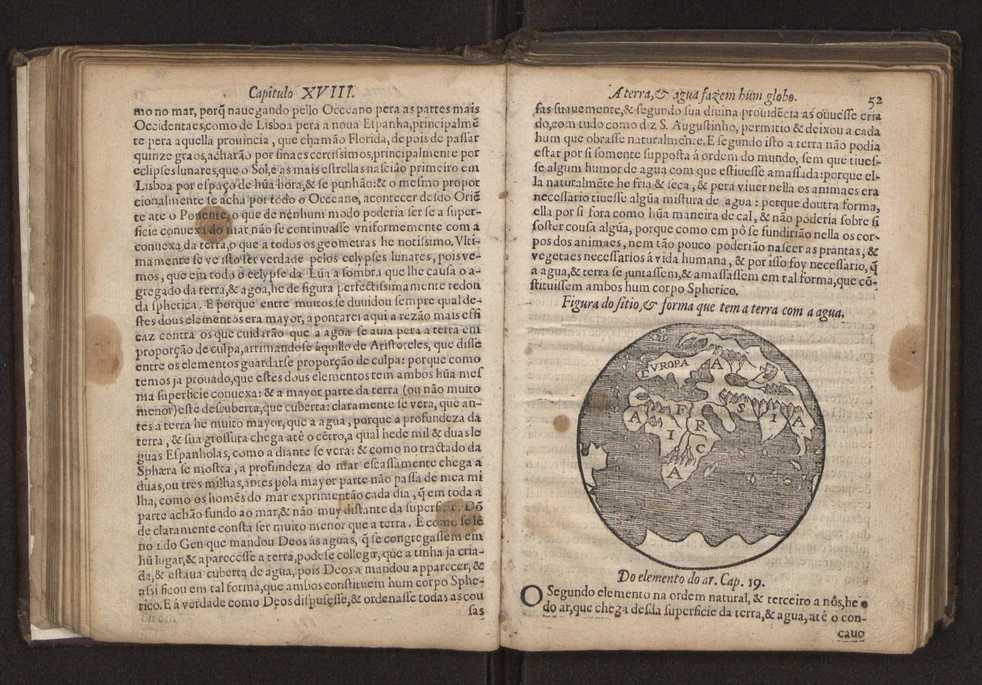 Capitulo XVIII.
mo no mar, porq̃ nauegando pello Occeano pera as partes mais
Occidentaes, como de Lisboa pera a noua Espanha, principalmẽ
te pera aquella prouincia, que chamão Florida, depois de passar
quinze graos, acharão por sinaes certissimos, principalmente por
eclipses lunares, que o Sol, e as mais estrellas nascião primeiro em
Lisboa por espaço de hũa hora, & se punhão: & o mesmo propor
cionalmente se acha por todo o Occeano, acontecer desdo Oriẽ
te ate o Ponente, o que de nenhum modo poderia ser se a super-
ficie conuexa do mar não se continuasse vniformemente com a
conuexa da terra, o que a todos os geometras he notissimo. Vlti-
mamente se ve isto ser verdade pelos eclypses lunares, pois ve-
mos, que em todo o eclypse da Lũa a sombra que lhe causa o a-
gregado da terra, & agoa, he de figura perfectissimamente redon
da spherica. E porque entre muitos se duuidou sempre qual de-
stes dous elementos era mayor, a pontarei aqui a rezão mais effi
caz contra os que cuidarão que a agoa se auia pera a terra em
proporção de culpa, arrimandose àquillo de Aristoteles, que disse
entre os elementos guardarse proporção de culpa: porque como
temos ja prouado, que estes dous elementos tem ambos hũa mes
ma superficie conuexa: & a mayor parte da terra (ou não muito
menor) este descuberta, que cuberta: claramente se vera, que an-
tes a terra he muito mayor, que a agua, porque a profundeza da
terra, & sua grossura chega atê o cẽtro, a qual he de mil & duas le
guas Espanholas, como a diante se vera: & como no tractado da
Sphæra se mostra, a profundeza do mar escassamente chega a
duas, ou tres milhas, antes pola mayor parte não passa de mea mi
lha, como os homẽs do mar exprimentão cada dia, q̃ em toda a
parte achão fundo ao mar, & não muy distante da superficie. Dõ
de claramente consta ser muito menor que a terra. E como se lê
no 1. do Gen. que mandou Deos às aguas, q̃ se congregassem em
hũ lugar, & aparecesse a terra, podese collegir, que a tinha ja cria-
da, & estaua cuberta de agua, pois Deos a mandou apparecer, &
assi ficou em tal forma, que ambos constituem hum corpo Sphe-
rico. E á verdade como Deos dispusesse, & ordenasse todas as cou
sas
A terra, & agua fazem hũm globo.
52
sas suauemente, & segundo sua diuina prouidẽcia as ouuesse cria
do, com tudo como diz S. Augustinho, permitio & deixou a cada
hum que obrasse naturalmente. E segundo isto a terra não podia
estar por si somente supposta á ordem do mundo, sem que tiues-
se algum humor de agua com que estiuesse amassada: porque el-
la naturalmẽte he fria & seca, & pera viuer nella os animaes era
necessario tiuesse algũa mistura de agua: porque doutra forma,
ella por si fora como hũa maneira de cal, & não poderia sobre si
soster cousa algũa, porque como em pò se fundirião nella os cor-
pos dos animaes, nem tão pouco poderião nascer as prantas, &
vegetaes necessarios á vida humana, & por isso foy necessario, q̃
a agua, & terra se juntassem, & amassassem em tal forma, que cõ-
stituissem ambos hum corpo Spherico.
Figura do sitio, & forma que tem a terra com a agua.
EVROPA A
A F S
I R I A
C
A
Do elemento do ar. Cap. 19.
O Segundo elemento na ordem natural, & terceiro a nôs, he o
do ar, que chega desda superficie da terra, & agua, atê o con-
cauo